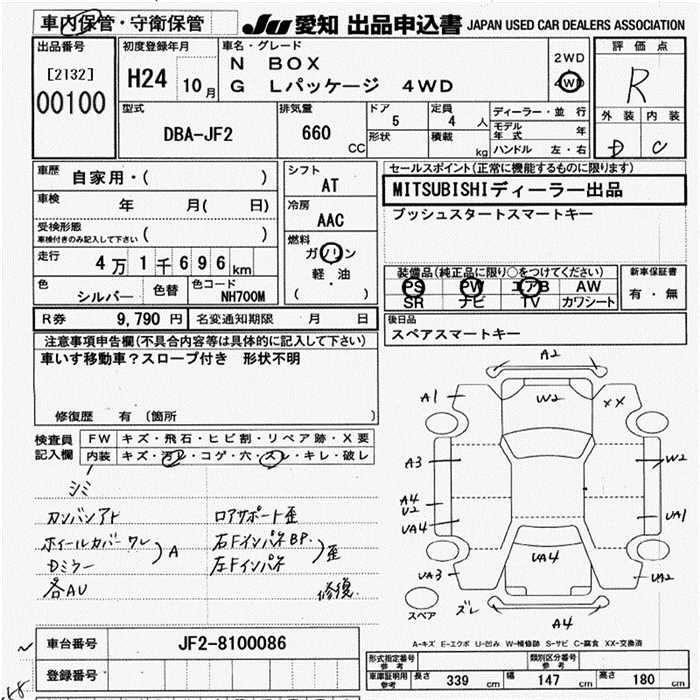 車内保管・守衛保管 JU 愛知 出品申込書 JAPAN USED CAR DEALERS ASSOCIATION
出品番号
[2132]
00100
初度登録年月
H24 10月
車名・グレード
N BOX
G Lパッケージ 4WD
2WD
4WD
評価点
R
外装 内装
D C
型式
DBA-JF2
排気量
660 CC
ドア 5
形状
定員 4 人
積載 kg
ディーラー・並行
モデル年式 年
ハンドル 左・右
車歴 自家用・( )
車検 年 月( 日)
受検形態
車検付きのみ記入して下さい ( )
走行 4万1千696km
色 シルバー 色替 色コード NH700M
シフト
AT
冷房
AAC
燃料
ガソリン
軽・油
( )
セールスポイント(正常に機能するものに限ります)
MITSUBISHIディーラー出品
プッシュスタートスマートキー
装備品(純正品に限り○をつけてください)
PS PW エアB AW
SR ナビ TV カワシート
新車保証書
有・無
R券 9,790 円 名変通知期限 月 日
後日品
スペアスマートキー
注意事項申告欄(不具合内容等は具体的に記入して下さい)
車いす移動車?スロープ付き 形状不明
修復歴 有 (箇所 )
検査員記入欄
FW キズ・飛石・ヒビ割・リペア跡・X要
内装 キズ・汚レ・コゲ・穴・スレ・キレ・破レ
シミ
カンバンアト
ホイールカバーワレ
Dミラー
A
各AU
ロアサポート歪
右FインパネBP.
左Fインパネ
歪
修復
A2
A1
W2
XX
A3
W2
A4
U2
UA4
UA1
UA3
UA4
UA2
スペア
ズレ
A4
A-キズ E-エクボ U-凹み W-補修跡 S-サビ C-腐食 XX-交換済
車台番号 JF2-8100086
登録番号
形式指定番号 参考
類別区分番号 参考
車庫証明用参考 長さ 339 cm 幅 147 cm 高さ 180 cm